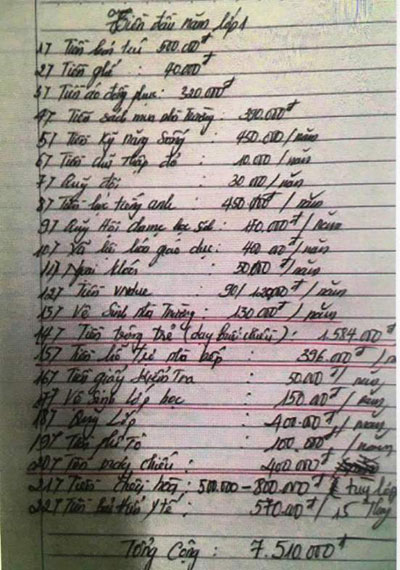 Tiền đầu năm lớp 1
1/ Tiền 500.000đ
2/ Tiền ghế : 40.000đ
3/ Tiền áo đồng phục: 320.000đ
4/ Tiền sách mua nhà trường: 390.000đ
5/ Tiền Kỹ năng Sống : 450.000 / năm
6/ Tiền chữ thập đỏ : 10.000 / năm
7/ Quỹ đội : 30 000 / năm
8/ Tiền học tiếng anh : 450.000đ / năm
9/ Quỹ Hội học sinh : 150.000đ / năm
10/ Xã hội hóa giáo dục: 400 000đ / năm
11/ Ngoại khóa : 50.000đ / năm
12/ Tiền vnedu : 90/ 120.000đ / năm
13/ Vệ Sinh nhà Trường : 130.000đ / năm
14/ Tiền trông trẻ (dạy buổi chiều) : 1.584.000đ
15/ Tiền nhà bếp : 396.000đ /
16/ Tiền giấy kiểm Tra : 50.000đ / năm
17/ Vệ Sinh lớp học : 150.000đ / năm
18/ Quỹ Lớp : 400.000đ / năm
19/ Tiền Tô : 100.000đ / năm
20/ Tiền máy chiếu : 400 000đ
21/ Tiền : 500.000 - 800.000đ tuỳ lớp
22/ Tiền bảo hiểm y tế : 570.000đ / 15 Tháng
Tổng Cộng : 7.510.000đ